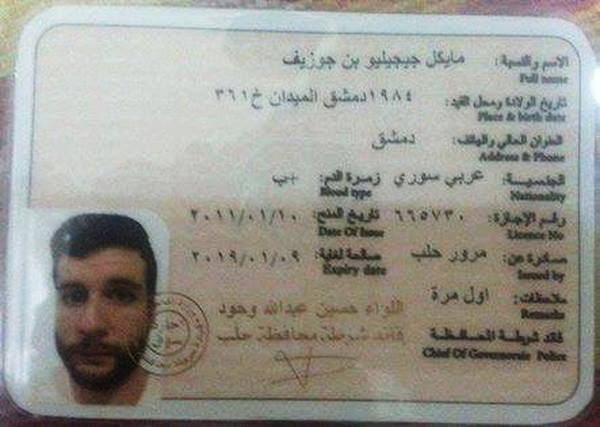 الاسم والنسبة: مايكل جيجيليو بن جوزيف
Full name
تاريخ الولادة ومحل القيد: ١٩٨٤ دمشق الميدان خ ٣٦١
Place & birth date
العنوان الحالي والهاتف: دمشق
Address & Phone
الجنسية: عربي سوري زمرة الدم: +ب
Nationality Blood type
رقم الإجازة: ٦٦٥٧٣٠ تاريخ المنح: ٢٠١١/٠١/١٠
Licence No Date Of Issue
صادرة عن: مرور حلب صالحة لغاية: ٢٠١٩/٠١/٠٩
Issued by Expiry date
ملاحظات: اول مرة
Remarks
اللواء حسين عبدالله وحود
قائد شرطة المحافظة قائد شرطة محافظة حلب
Chief Of Governorate Police